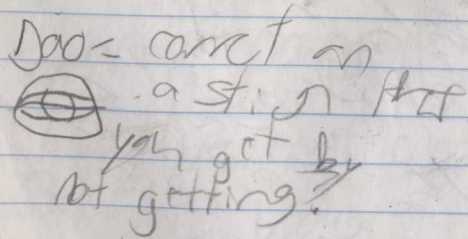 Dao= conrct an
a stign that
you get by
not getting?